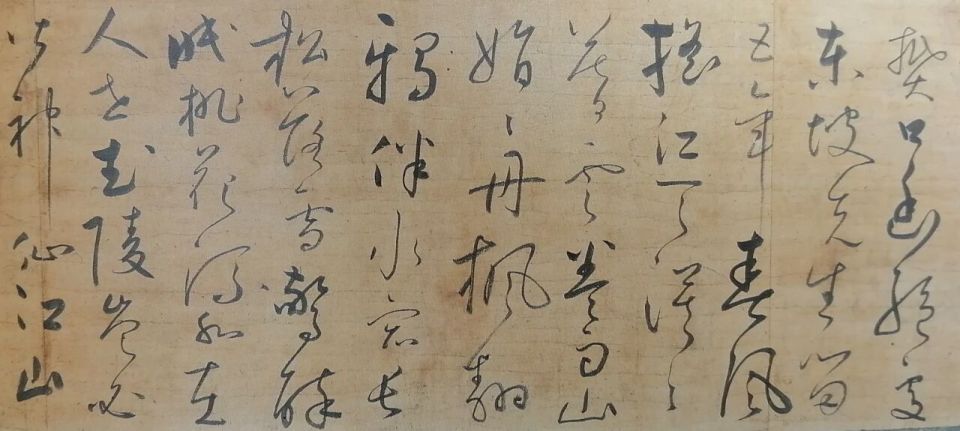 樊口幽絕處
東坡先生留
五年春風
搖江天漠〻
暮雲卷雨山
娟〻丹楓翻
鴉伴水宿長
松落雪驚醉
眠桃花流水在
人世武陵豈必
皆神仙江山